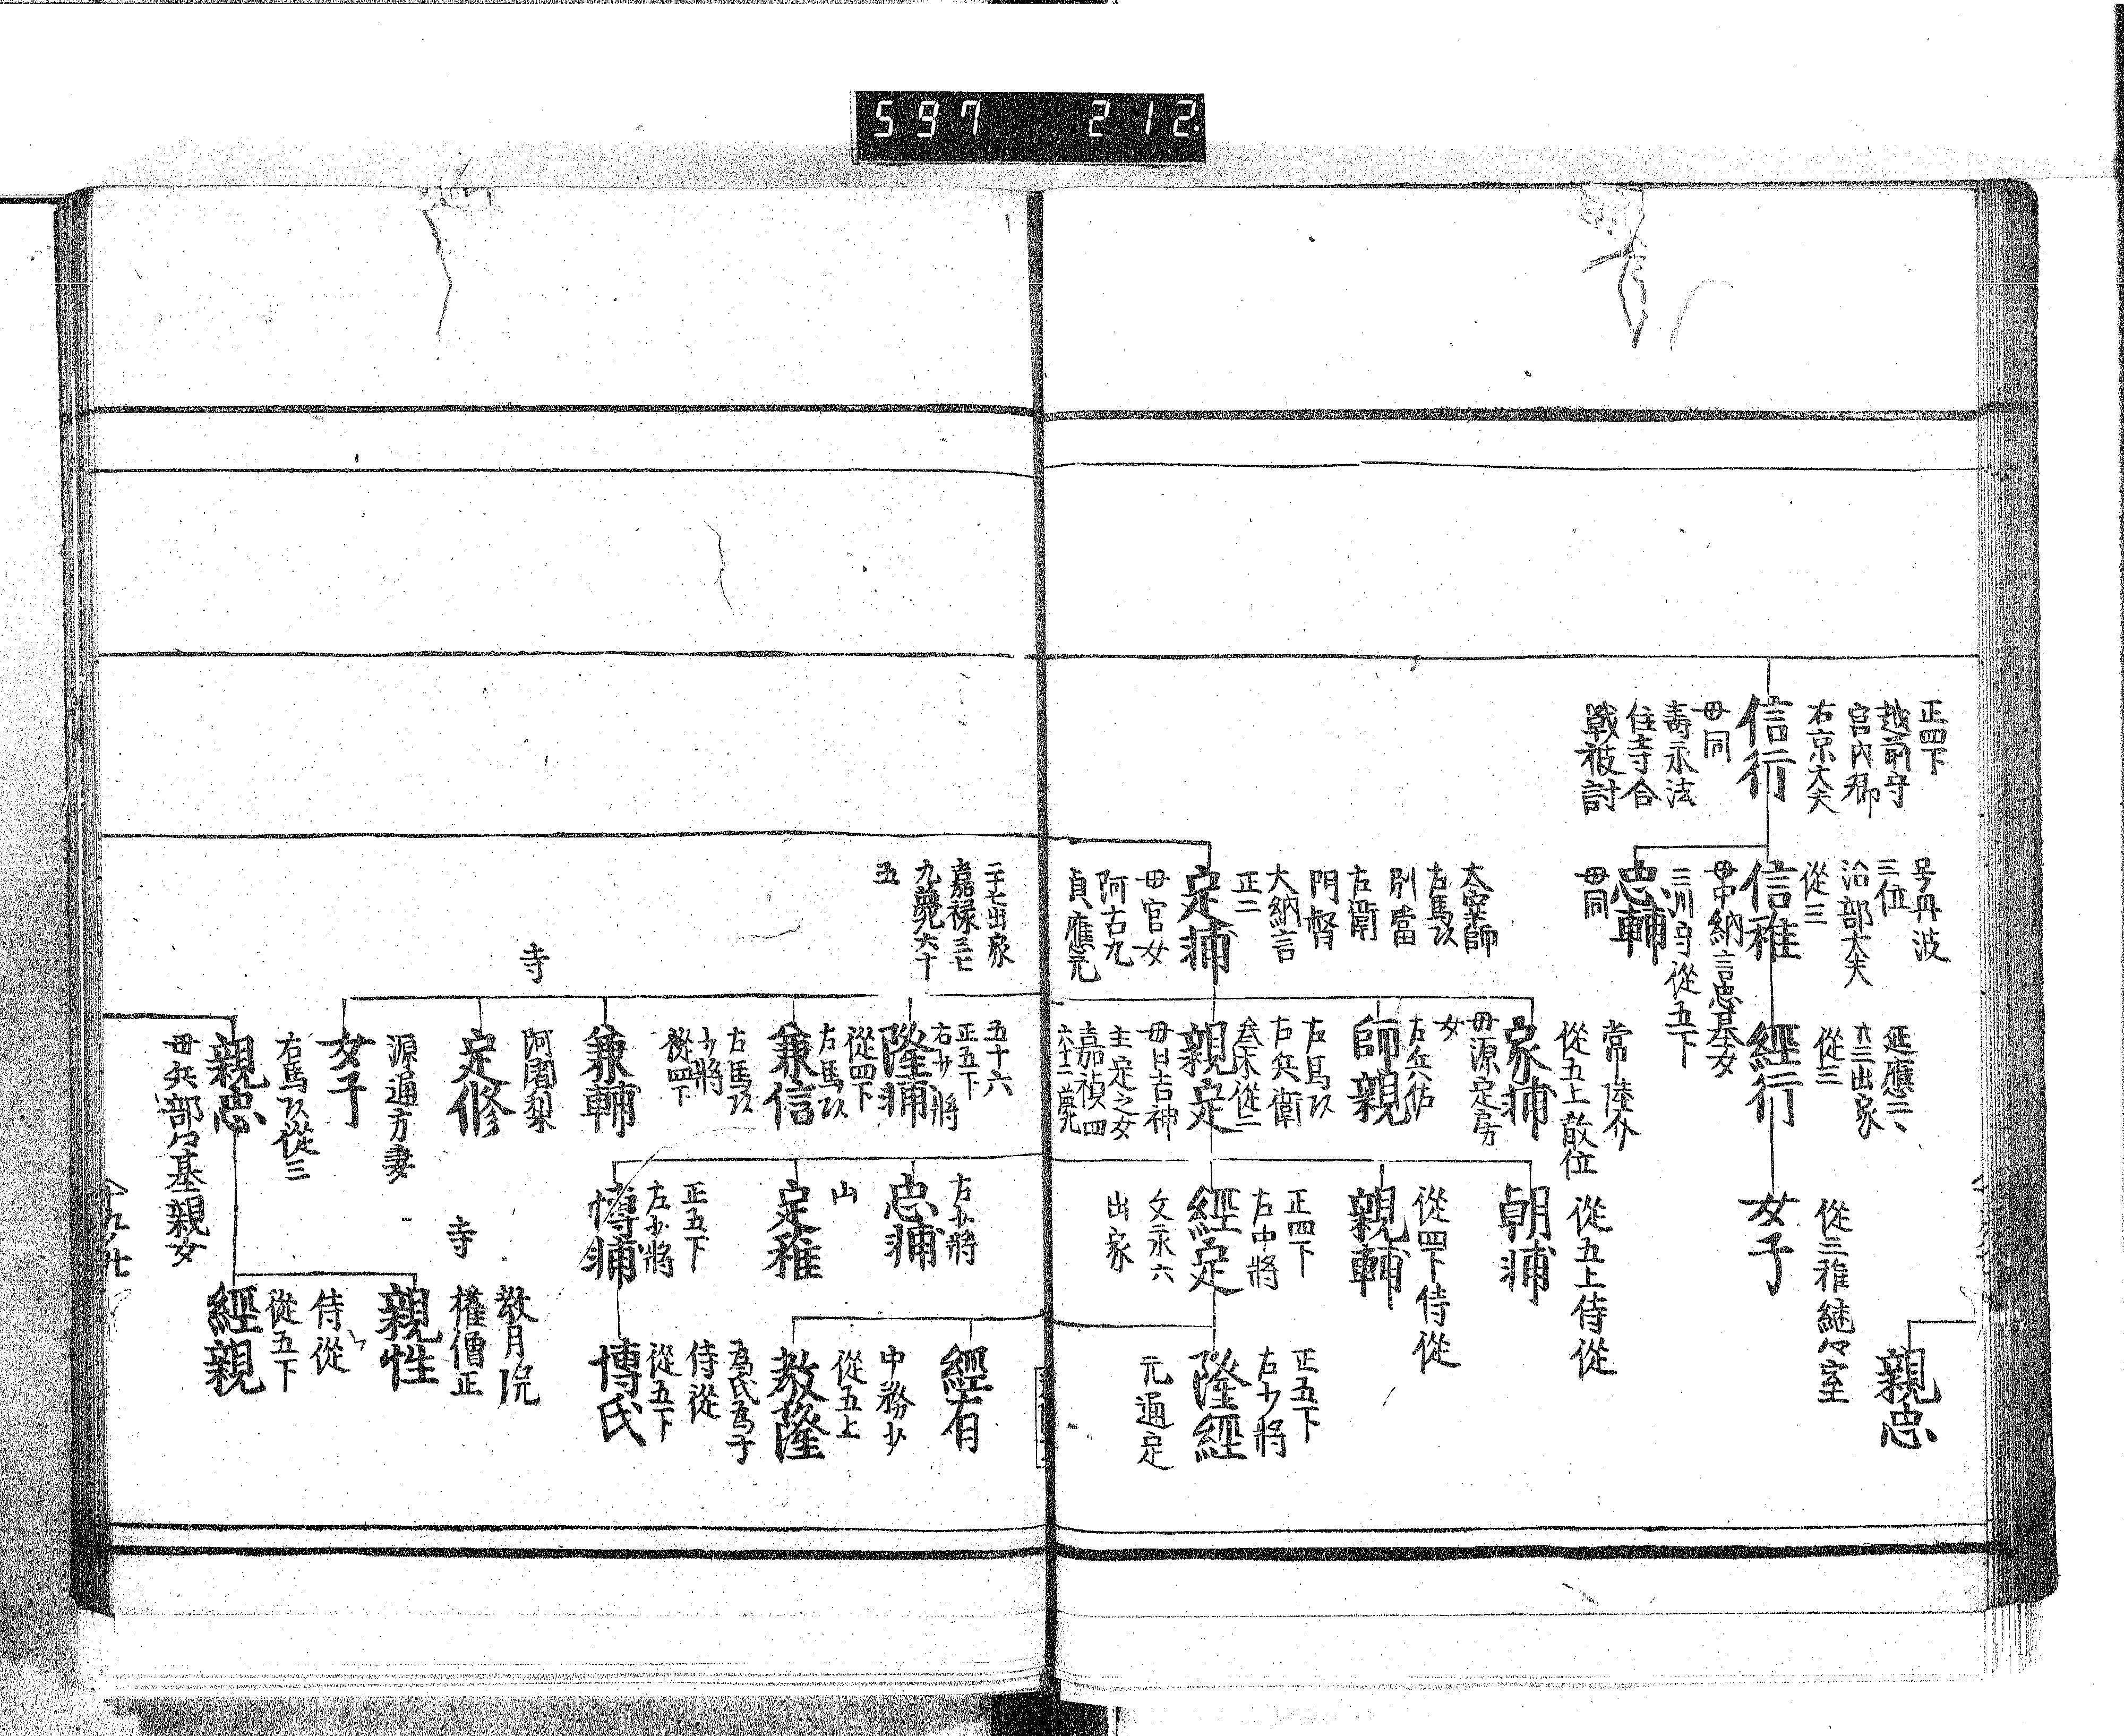 597 212
正四下
越前守
宮内卿
右京大夫
信行
母同
壽永法
住寺合
戦被討
号丹波
三位
治部大夫
從三
信雅
母中納言忠基女
三川守從五下
忠輔
母同
延應二、
六三出家
從三
經行
從二雅継々室
女子
親忠
太宰帥
右馬頭
別當
右衛
門督
大納言
正二
定輔
母官女
阿古九
貞應元
常陸介
從五上散位
家輔
母源定房
女
右兵佐
師親
左馬頭
右兵衛
参木從二
親定
母日吉神
主定之女
嘉禎四
六十一薨
從五上侍從
朝輔
從四下侍從
親輔
正四下
右中將
經定
文永六
出家
正五下
右少將
隆經
元通定
二十七出家
嘉禄三七
九薨六十
五
五十六
正五下
右少將
隆輔
從四下
左馬頭
兼信
右馬頭
少將
從四下
兼輔
寺
阿闍梨
定修
源通方妻
女子
右馬頭從三
親忠
母兵部々基親女
右少將
忠輔
山
定雅
正五下
左少將
博輔
經有
中務少
從五上
教隆
為氏為子
侍從
從五下
博氏
寺
教月院
權僧正
親性
侍從
從五下
經親